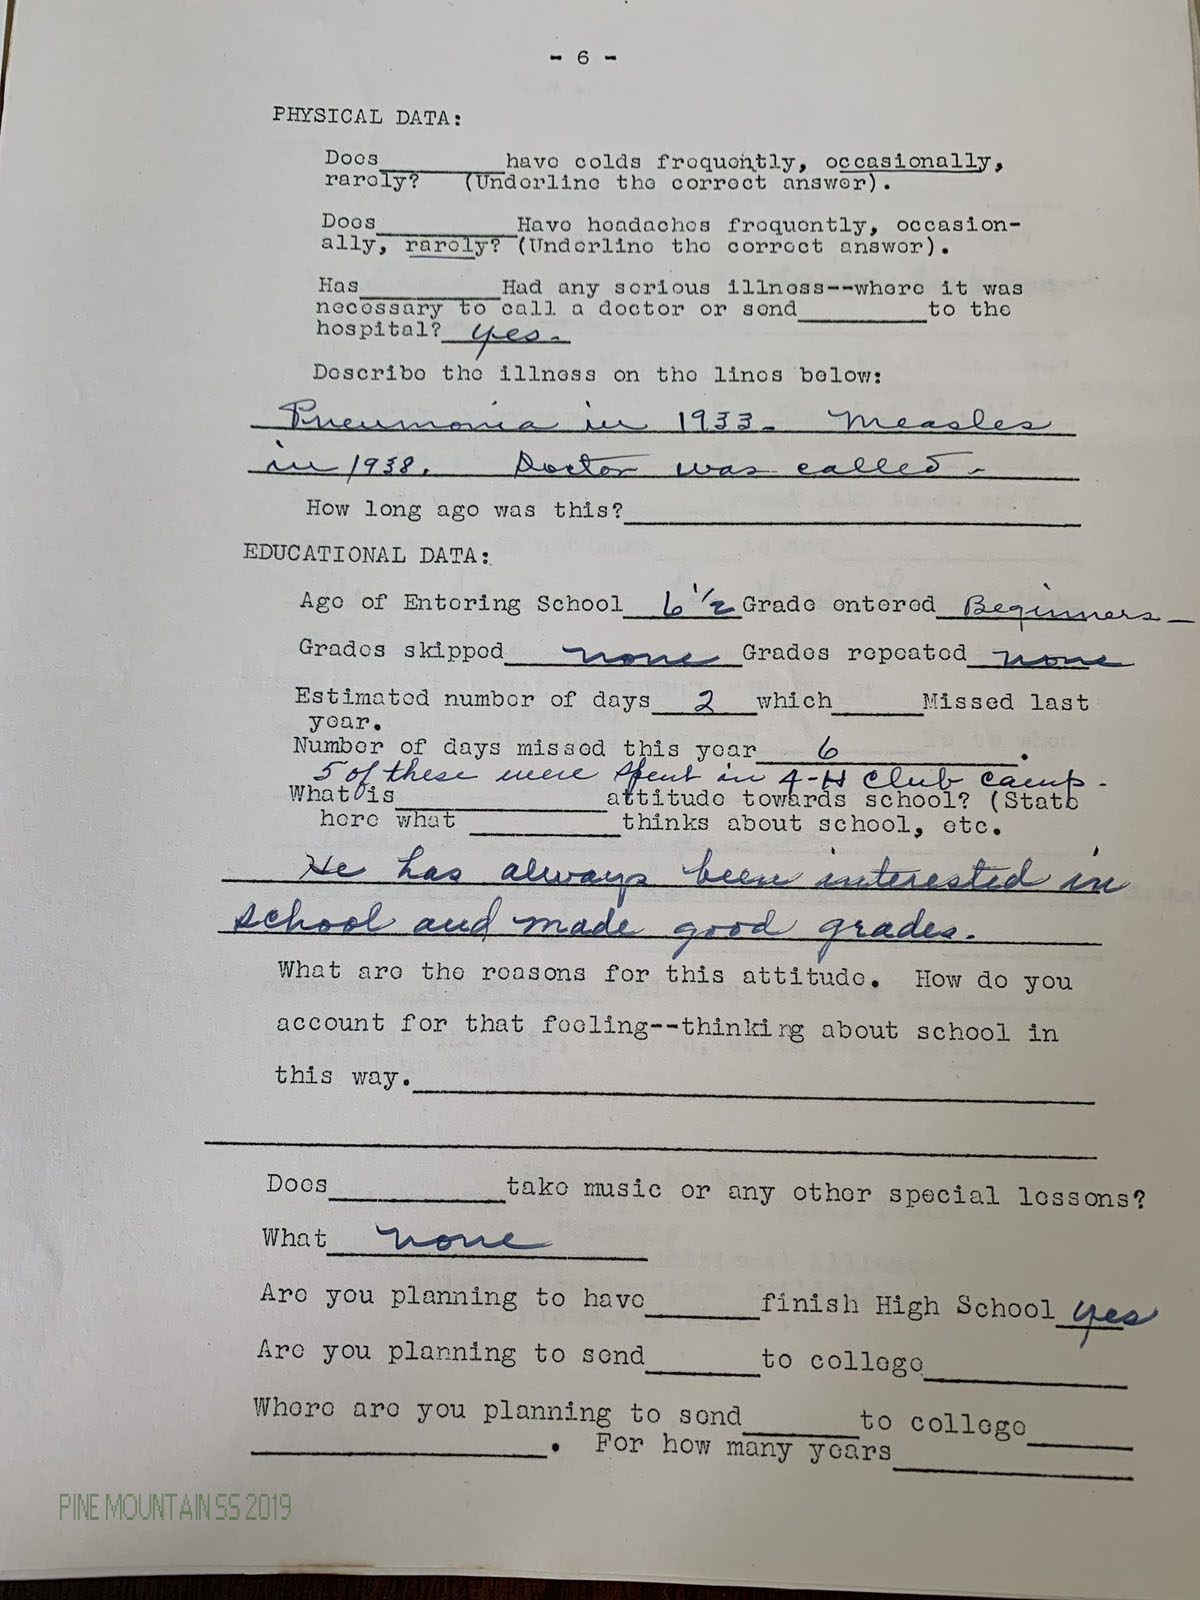 - 6 -
PHYSICAL DATA:
Does________have colds frequently, occasionally,
rarely? (Underline the correct answer).
Does________Have headaches frequently, occasion-
ally, rarely? (Underline the correct answer).
Has________Had any serious illness--where it was
necessary to call a doctor or send________to the
hospital? yes.
Describe the illness on the lines below:
Pneumonia in 1933. Measles
in 1938. Doctor was called.
How long ago was this?________
EDUCATIONAL DATA:
Age of Entering School 6 1/2 Grade entered Beginners
Grades skipped none Grades repeated none
Estimated number of days 2 which______Missed last
year.
Number of days missed this year 6 .
5 of these were spent in 4-H Club camp.
What is________attitude towards school? (State
here what ________thinks about school, etc.
He has always been interested in
school and made good grades.
What are the reasons for this attitude. How do you
account for that feeling--thinking about school in
this way.________
Does________take music or any other special lessons?
What none
Are you planning to have______finish High School yes
Are you planning to send______to college________
Where are you planning to send______to college______
________. For how many years________
PINE MOUNTAIN SS 2019